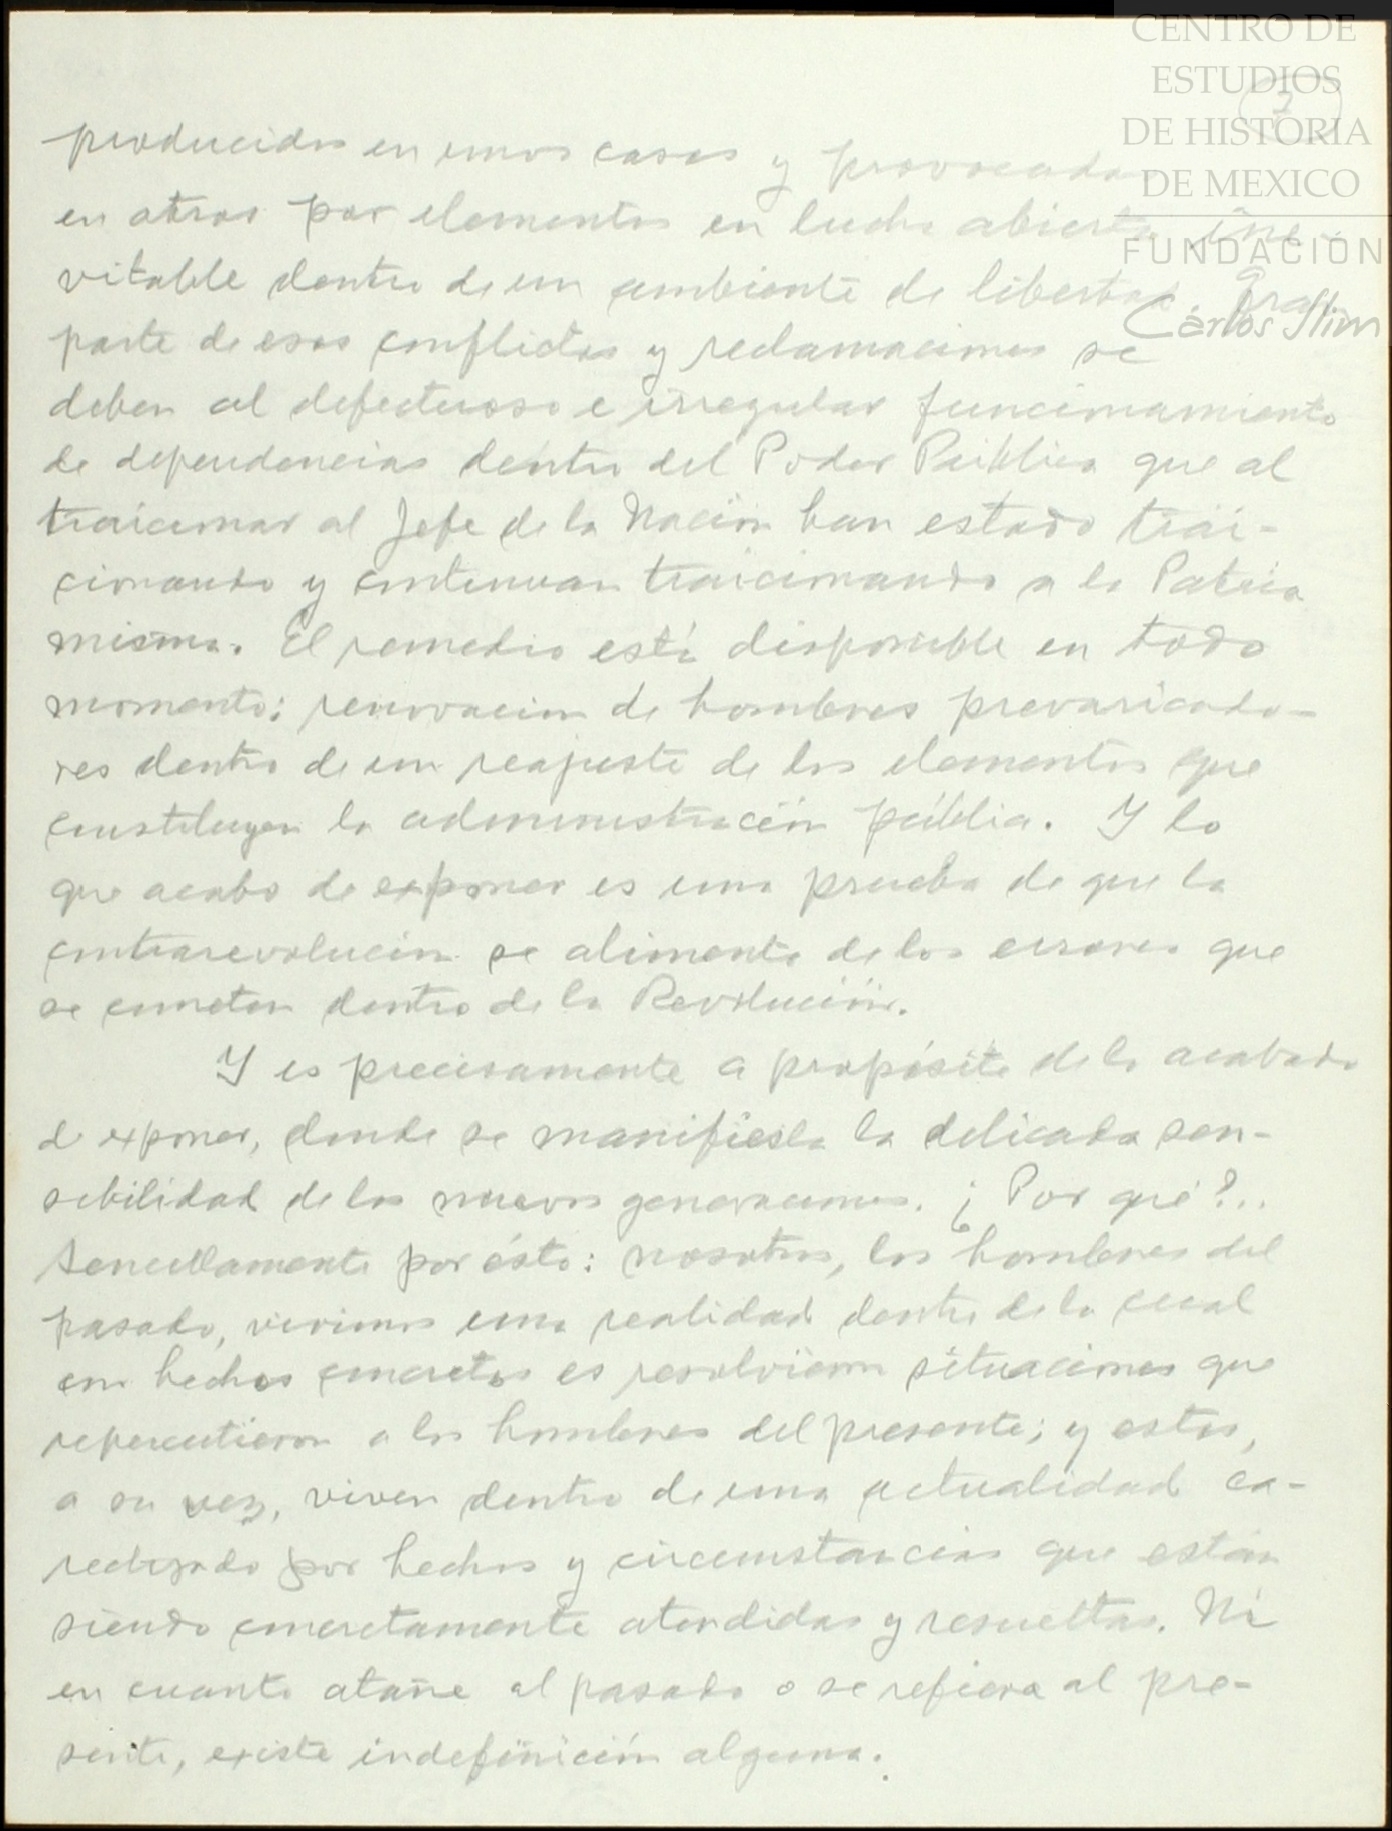 CENTRO DE
ESTUDIOS
DE HISTORIA
DE MEXICO
FUNDACIÓN
Carlos Slim
producidos en unos casos y provocados
en otros por elementos en lucha abierta ine-
vitable dentro de un ambiente de libertad. Gran
parte de esos conflictos y reclamaciones se
deben al defectuoso e irregular funcionamiento
de dependencias dentro del Poder Público que al
traicionar al Jefe de la Nación han estado trai-
cionando y continuan traicionando a la Patria
misma. El remedio está disponible en todo
momento: renovacion de hombres prevaricado-
res dentro de un reajuste de los elementos que
constituyen la administración pública. Y lo
que acabo de exponer es una prueba de que la
contrarevolución se alimenta de los errores que
se cometen dentro de la Revolución.
Y es precisamente a propósito de lo acabado
de exponer, donde se manifiesta la delicada sen-
sibilidad de las nuevas generaciones. ¿Por qué?..
Sencillamente por ésto: nosotros, los hombres del
pasado, vivimos una realidad dentro de la cual
con hechos concretos es resolvieron situaciones que
repercutieron a los hombres del presente; y estos,
a su vez, viven dentro de una actualidad ca-
por hechos y circunstancias que están
siendo concretamente atendidas y resueltas. Ni
en cuanto atañe al pasado o se refiera al pre-
sente, existe indefinición alguna.